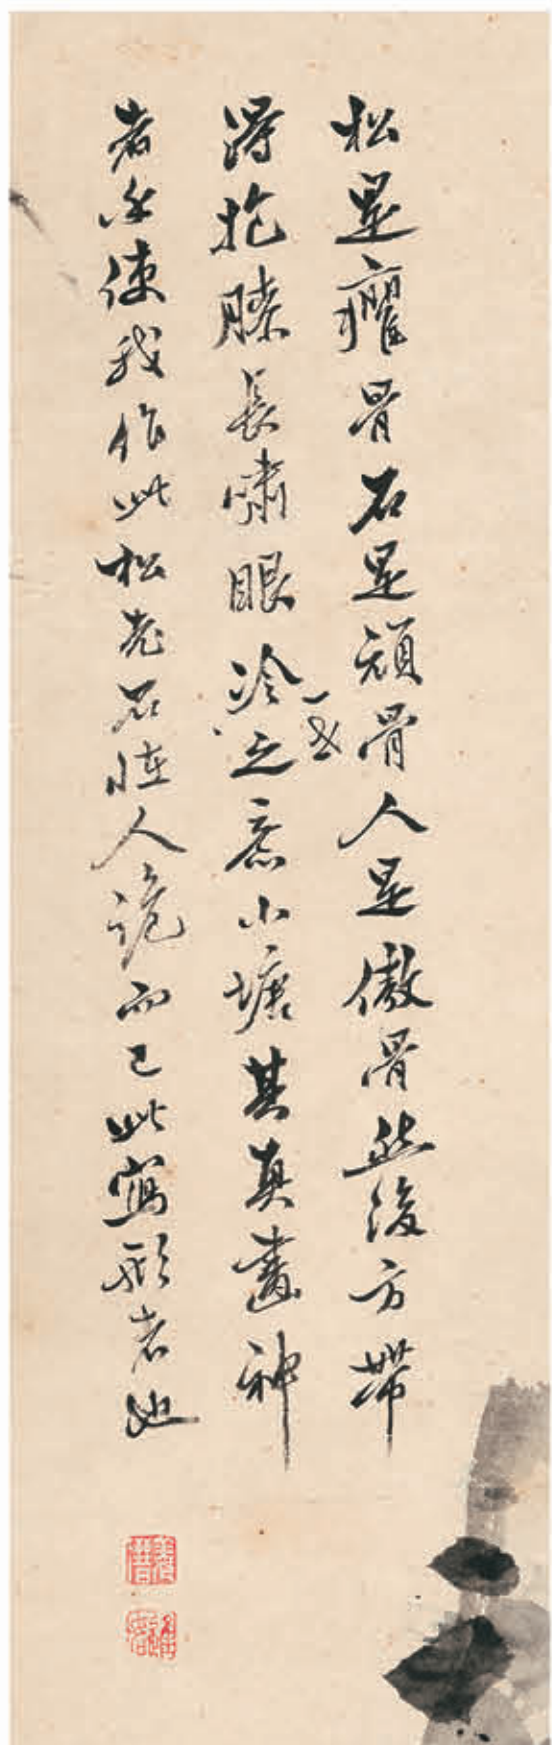 松是癯骨石是頑骨人是傲骨然後方帶
得抱膝長嘯眼冷一世之意小塘其真畵神
者乎使我作此松老石怪人詭而已此寫形者也